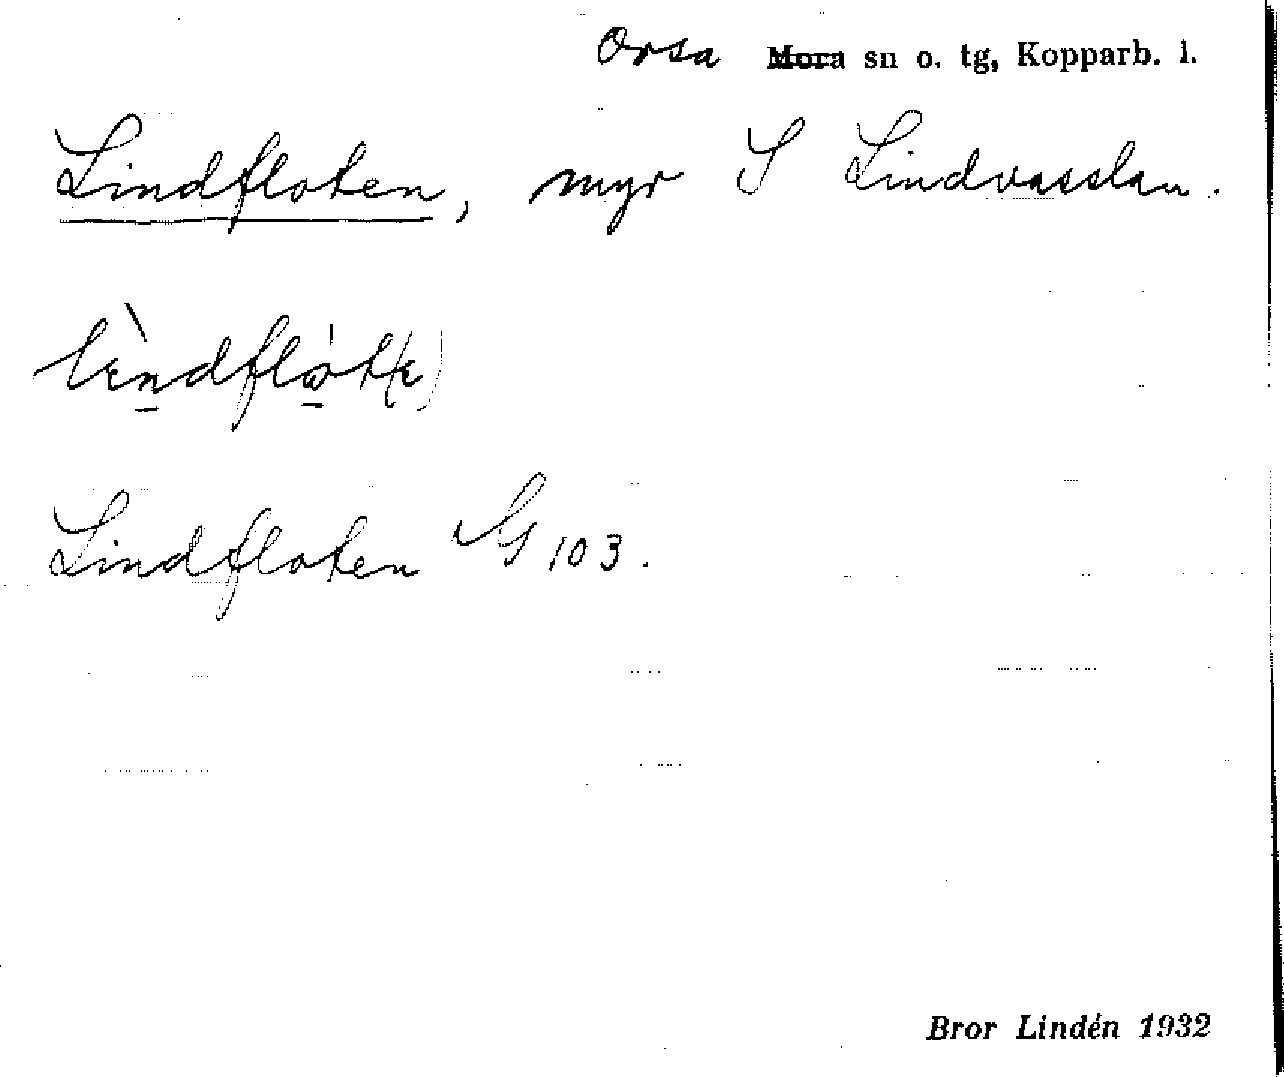 Orsa Mora sn o. tg, Kopparb. l.
Lindfloten, myr S Lindvasslan.
Lindfloten SG 103.
Bror Lindén 1932